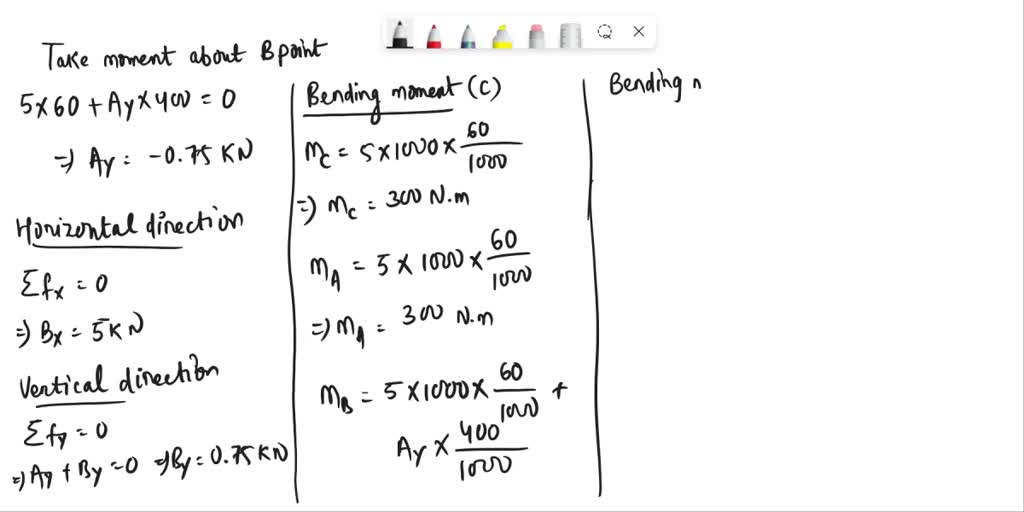 Take moment about B point
5×60 + Ay×400 = 0
=) Ay = -0.75 KN
Horizontal direction
Σfx = 0
=) Bx = 5KN
Vertical direction
Σfy = 0
=) Ay + By = 0 =) By = 0.75 KN
Bending moment (C)
Mc = 5×1000× 60/1000
=) Mc = 300 N.m
MA = 5 × 1000 × 60/1000
=) MA = 300 N.m
MB = 5×1000× 60/1000 +
Ay × 400/1000
Bending n